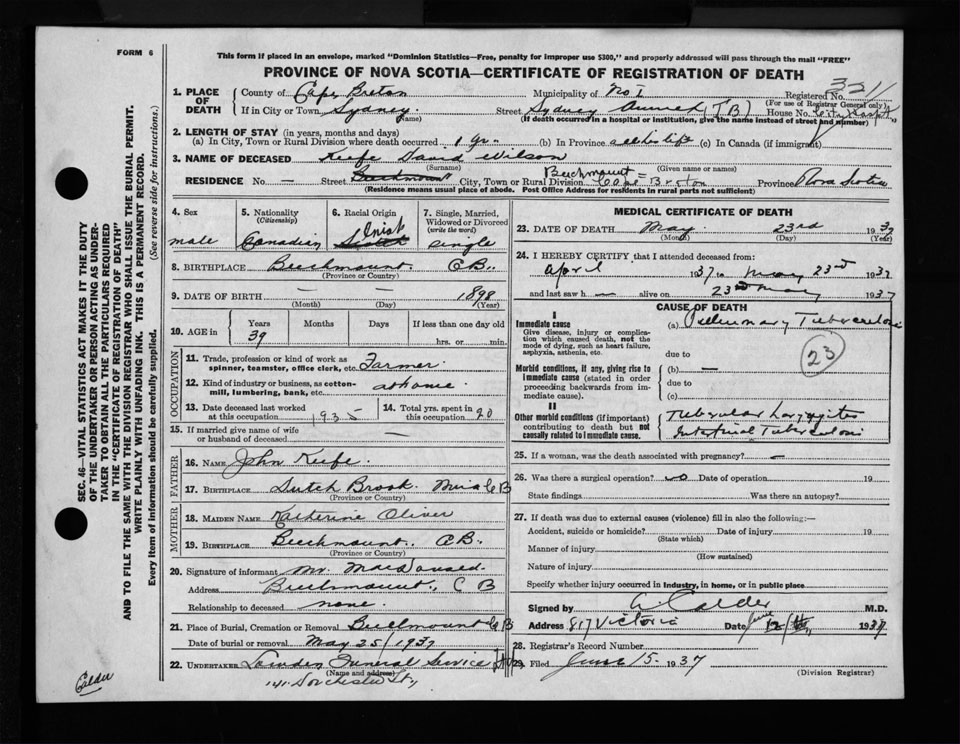 FORM 6
This form if placed in an envelope, marked "Dominion Statistics—Free, penalty for improper use $300," and properly addressed will pass through the mail "FREE"
PROVINCE OF NOVA SCOTIA—CERTIFICATE OF REGISTRATION OF DEATH
3211
1. PLACE OF DEATH County of Cape Breton Municipality of No 1 Registered No.
(For use of Registrar General only)
If in City or Town Sydney Street Sydney Annex (T B) House No. City Hospt
(Name) (If death occurred in a hospital or institution, give the name instead of street and number)
2. LENGTH OF STAY (in years, months and days)
(a) In City, Town or Rural Division where death occurred 1 yr. (b) In Province all his life (c) In Canada (if immigrant)
3. NAME OF DECEASED Keefe David Wilson
(Surname) (Given name or names)
RESIDENCE No. — Street Beechmount City, Town or Rural Division Beechmount = Cape Breton Province Nova Scotia
(Residence means usual place of abode. Post Office Address for residents in rural parts not sufficient)
4. Sex male
5. Nationality (Citizenship) Canadian
6. Racial Origin Irish Scotch
7. Single, Married, Widowed or Divorced (write the word) single
8. BIRTHPLACE Beechmount. C B.
(Province or Country)
9. DATE OF BIRTH — — 1898
(Month) (Day) (Year)
10. AGE in Years Months Days If less than one day old
39 hrs. or min.
OCCUPATION
11. Trade, profession or kind of work as spinner, teamster, office clerk, etc. Farmer
12. Kind of industry or business, as cotton-mill, lumbering, bank, etc. at home.
13. Date deceased last worked at this occupation 1935
14. Total yrs. spent in this occupation 20
15. If married give name of wife or husband of deceased —
FATHER
16. NAME John Keefe.
17. BIRTHPLACE Dutch Brook. Mira C B
(Province or Country)
MOTHER
18. MAIDEN NAME Katherine Oliver
19. BIRTHPLACE Beechmount. C B.
(Province or Country)
20. Signature of informant Mr. MacDonald.
Address Beechmount, C B
Relationship to deceased none.
21. Place of Burial, Cremation or Removal Beechmount C B
Date of burial or removal May 25/1937
22. UNDERTAKER Lowden Funeral Service Ltd
(Name and address)
141 Dorchester St,
MEDICAL CERTIFICATE OF DEATH
23. DATE OF DEATH May. 23rd 1937
(Month) (Day) (Year)
24. I HEREBY CERTIFY that I attended deceased from:
April 1937 to May 23rd 1937
and last saw h— alive on 23rd May 1937
CAUSE OF DEATH
I
Immediate cause
Give disease, injury or complication which caused death, not the mode of dying, such as heart failure, asphyxia, asthenia, etc.
(a) Pulmonary Tuberculosis
due to
23
Morbid conditions, if any, giving rise to immediate cause (stated in order proceeding backwards from immediate cause).
(b) —
due to
(c)
II
Other morbid conditions (if important) contributing to death but not causally related to immediate cause.
Tubercular Laryngitis
Intestinal Tuberculosis
25. If a woman, was the death associated with pregnancy? —
26. Was there a surgical operation? no Date of operation 19
State findings Was there an autopsy?
27. If death was due to external causes (violence) fill in also the following:—
Accident, suicide or homicide? Date of injury 19
(State which)
Manner of injury
(How sustained)
Nature of injury
Specify whether injury occurred in industry, in home, or in public place
Signed by A Calder M.D.
Address 817 Victoria Date June 12/37 1937
28. Registrar's Record Number
29. Filed June 15. 1937
(Division Registrar)
SEC. 46—VITAL STATISTICS ACT MAKES IT THE DUTY
OF THE UNDERTAKER OR PERSON ACTING AS UNDER-
TAKER TO OBTAIN ALL THE PARTICULARS REQUIRED
IN THE "CERTIFICATE OF REGISTRATION OF DEATH"
AND TO FILE THE SAME WITH THE DIVISION REGISTRAR WHO SHALL ISSUE THE BURIAL PERMIT.
WRITE PLAINLY WITH UNFADING INK. THIS IS A PERMANENT RECORD.
Every item of information should be carefully supplied. (See reverse side for instructions.)
Calder